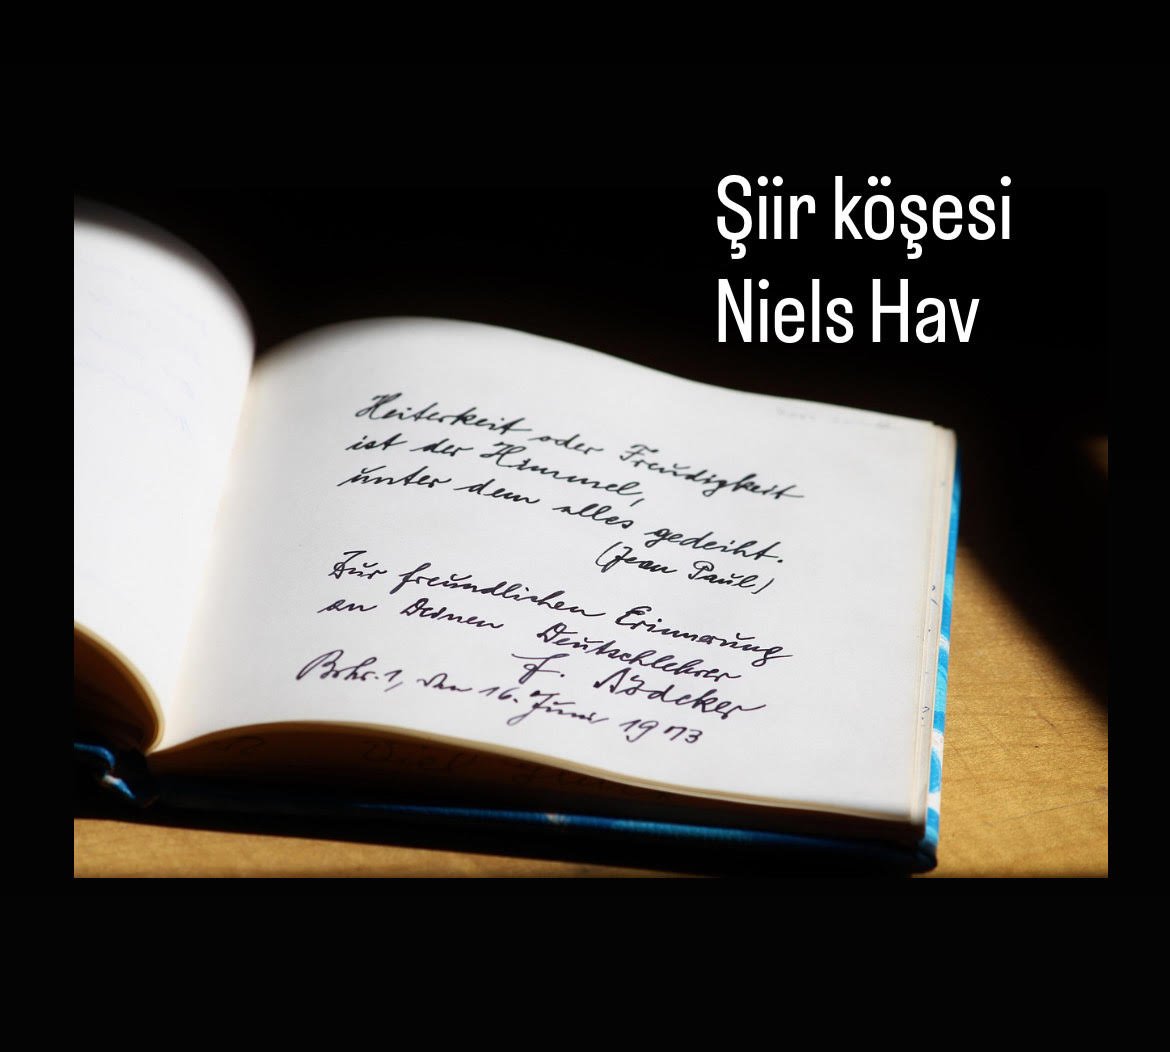 Şiir köşesi
Niels Hav
Heiterkeit oder Freudigkeit
ist der Himmel,
unter dem alles gedeiht.
(Jean Paul)
Zur freundlichen Erinnerung
an Deinen Deutschlehrer
F.
den 16. Juni 1973